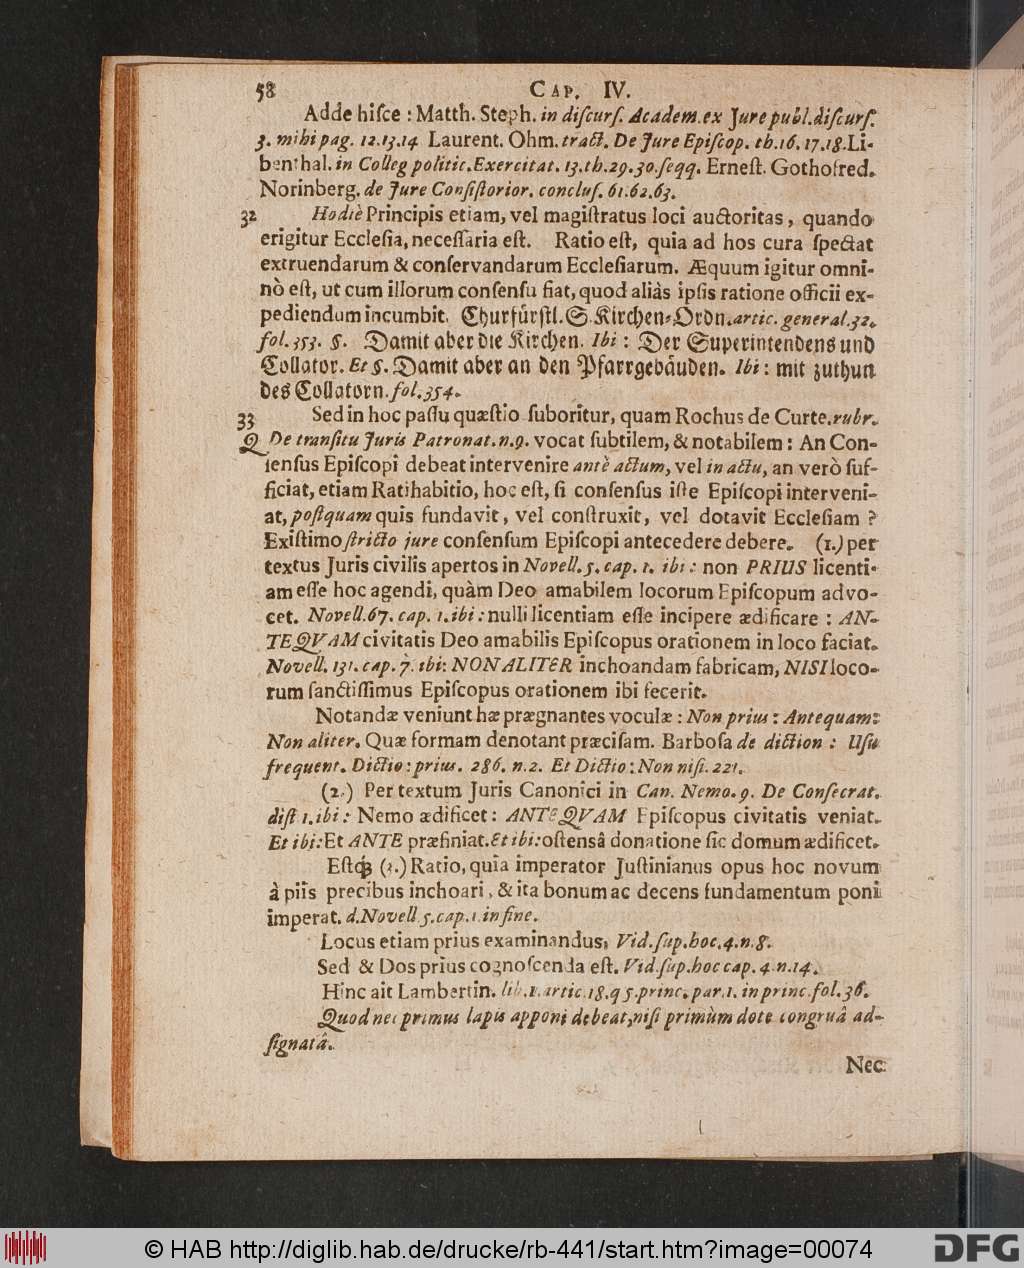 58 CAP. IV.
Adde hiſce : Matth. Steph. in diſcurſ. Academ. ex Jure publ. diſcurſ.
3. mihi pag. 12.13.14 Laurent. Ohm. tract. De Jure Epiſcop. th.16.17.18. Li-
benthal. in Colleg politic. Exercitat. 13. th. 29. 30. ſeqq. Erneſt. Gothofred.
Norinberg. de Jure Conſiſtorior. concluſ. 61.62.63.
32 Hodiè Principis etiam, vel magiſtratus loci auctoritas, quando
erigitur Eccleſia, neceſſaria eſt. Ratio eſt, quia ad hos cura ſpectat
extruendarum & conſervandarum Eccleſiarum. Æquum igitur omni-
nò eſt, ut cum illorum conſenſu fiat, quod aliàs ipſis ratione officii ex-
pediendum incumbit. Churfürſtl. S. Kirchen-Ordn. artic. general. 32.
fol. 353. §. Damit aber die Kirchen. Ibi : Der Superintendens und
Collator. Et §. Damit aber an den Pfarrgebäuden. Ibi : mit zuthun
des Collatorn. fol. 354.
33 Sed in hoc paſſu quæſtio ſuboritur, quam Rochus de Curte. rubr.
Q De tranſitu Juris Patronat. n. 9. vocat ſubtilem, & notabilem : An Con-
ſenſus Epiſcopi debeat intervenire antè actum, vel in actu, an verò ſuf-
ficiat, etiam Ratihabitio, hoc eſt, ſi conſenſus iſte Epiſcopi interveni-
at, poſtquam quis fundavit, vel conſtruxit, vel dotavit Eccleſiam ?
Exiſtimo ſtricto jure conſenſum Epiſcopi antecedere debere. (1.) per
textus Juris civilis apertos in Novell. 5. cap. 1. ibi : non PRIUS licenti-
am eſſe hoc agendi, quàm Deo amabilem locorum Epiſcopum advo-
cet. Novell. 67. cap. 1. ibi : nulli licentiam eſſe incipere ædificare : AN-
TEQVAM civitatis Deo amabilis Epiſcopus orationem in loco faciat.
Novell. 131. cap. 7. ibi: NON ALITER inchoandam fabricam, NISI loco-
rum ſanctiſſimus Epiſcopus orationem ibi fecerit.
Notandæ veniunt hæ prægnantes voculæ : Non prius : Antequam:
Non aliter. Quæ formam denotant præciſam. Barboſa de diction : Uſu
frequent. Dictio : prius. 286. n. 2. Et Dictio : Non niſi. 221.
(2.) Per textum Juris Canonici in Can. Nemo. 9. De Conſecrat.
diſt 1. ibi : Nemo ædificet : ANTEQVAM Epiſcopus civitatis veniat.
Et ibi: Et ANTE præfiniat. Et ibi: oſtensâ donatione ſic domum ædificet.
Eſtq; (3.) Ratio, quia imperator Juſtinianus opus hoc novum
à piis precibus inchoari, & ita bonum ac decens fundamentum poni
imperat. d. Novell 5. cap. 1. in fine.
Locus etiam prius examinandus, Vid. ſup. hoc. 4. n. 8.
Sed & Dos prius cognoſcenda eſt. Vid. ſup. hoc cap. 4. n. 14.
Hinc ait Lambertin. lib. 1. artic. 18. q 5. princ. par. 1. in princ. fol. 36.
Quod nec primus lapis apponi debeat, niſi primùm dote congruâ ad-
ſignatâ.
Nec
© HAB http://diglib.hab.de/drucke/rb-441/start.htm?image=00074
DFG